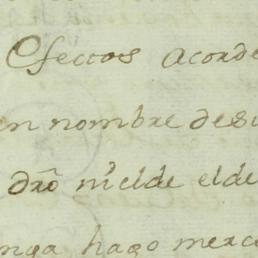 Efectos acorde
en nombre desu
dr̃o ni elde elde
nga hago merc